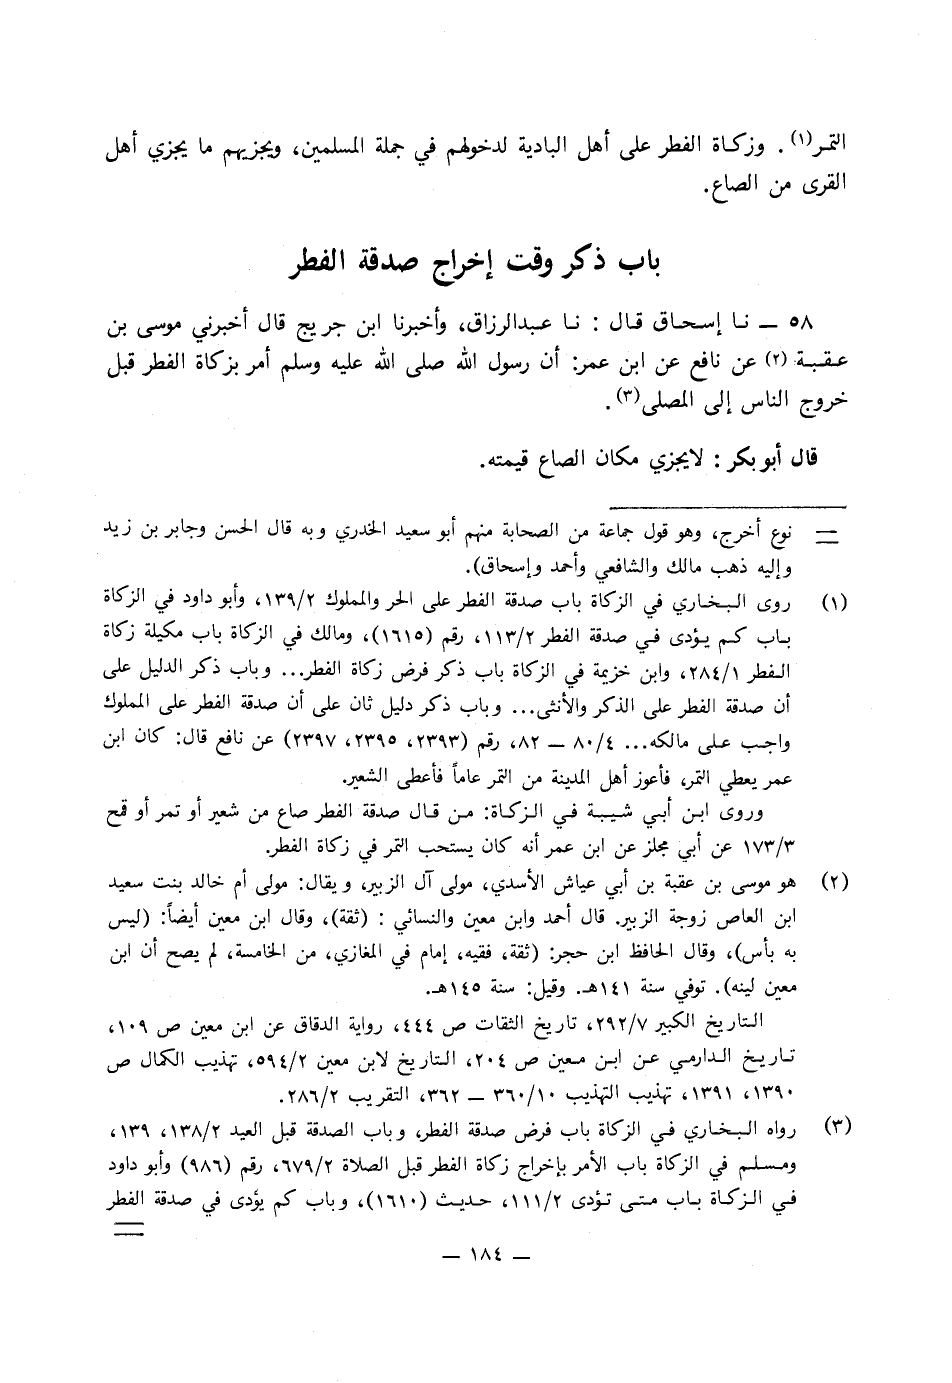 التمر(١). وزكاة الفطر على أهل البادية لدخولهم في جملة المسلمين، ويجزيهم ما يجزي أهل
القرى من الصاع.
باب ذكر وقت إخراج صدقة الفطر
٥٨ ــ نا إسحاق قال : نا عبدالرزاق، وأخبرنا ابن جريج قال أخبرني موسى بن
عقبة (٢) عن نافع عن ابن عمر: أن رسول الله صلى الله عليه وسلم أمر بزكاة الفطر قبل
خروج الناس إلى المصلى(٣).
قال أبو بكر : لايجزي مكان الصاع قيمته.
= نوع أخرج، وهو قول جماعة من الصحابة منهم أبو سعيد الخدري وبه قال الحسن وجابر بن زيد
وإليه ذهب مالك والشافعي وأحمد وإسحاق).
(١) روى البخاري في الزكاة باب صدقة الفطر على الحر والمملوك ١٣٩/٢، وأبو داود في الزكاة
باب كم يؤدى في صدقة الفطر ١١٣/٢، رقم (١٦١٥)، ومالك في الزكاة باب مكيلة زكاة
الفطر ٢٨٤/١، وابن خزيمة في الزكاة باب ذكر فرض زكاة الفطر... وباب ذكر الدليل على
أن صدقة الفطر على الذكر والأنثى... وباب ذكر دليل ثان على أن صدقة الفطر على المملوك
واجب على مالكه... ٨٠/٤ ــ ٨٢، رقم (٢٣٩٣، ٢٣٩٥، ٢٣٩٧) عن نافع قال: كان ابن
عمر يعطي التمر، فأعوز أهل المدينة من التمر عاماً فأعطى الشعير.
وروى ابن أبي شيبة في الزكاة: من قال صدقة الفطر صاع من شعير أو تمر أو قمح
١٧٣/٣ عن أبي مجلز عن ابن عمر أنه كان يستحب التمر في زكاة الفطر.
(٢) هو موسى بن عقبة بن أبي عياش الأسدي، مولى آل الزبير، ويقال: مولى أم خالد بنت سعيد
ابن العاص زوجة الزبير. قال أحمد وابن معين والنسائي : (ثقة)، وقال ابن معين أيضاً: (ليس
به بأس)، وقال الحافظ ابن حجر: (ثقة، فقيه، إمام في المغازي، من الخامسة، لم يصح أن ابن
معين لينه). توفي سنة ١٤١هـ. وقيل: سنة ١٤٥هـ.
التاريخ الكبير ٢٩٢/٧، تاريخ الثقات ص ٤٤٤، رواية الدقاق عن ابن معين ص ١٠٩،
تاريخ الدارمي عن ابن معين ص ٢٠٤، التاريخ لابن معين ٥٩٤/٢، تهذيب الكمال ص
١٣٩٠، ١٣٩١، تهذيب التهذيب ٣٦٠/١٠ ــ ٣٦٢، التقريب ٢٨٦/٢.
(٣) رواه البخاري في الزكاة باب فرض صدقة الفطر، وباب الصدقة قبل العيد ١٣٨/٢، ١٣٩،
ومسلم في الزكاة باب الأمر بإخراج زكاة الفطر قبل الصلاة ٦٧٩/٢، رقم (٩٨٦) وأبو داود
في الزكاة باب متى تؤدى ١١١/٢، حديث (١٦١٠)، وباب كم يؤدى في صدقة الفطر
=
ــ ١٨٤ ــ